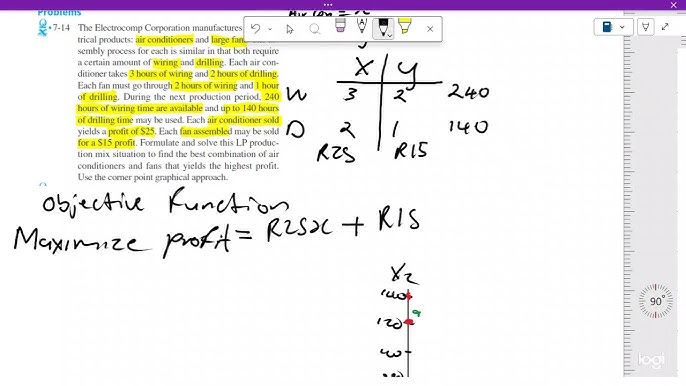 Problems
7-14 The Electrocomp Corporation manufactures
trical products: air conditioners and large fans
sembly process for each is similar in that both require
a certain amount of wiring and drilling. Each air con-
ditioner takes 3 hours of wiring and 2 hours of drilling.
Each fan must go through 2 hours of wiring and 1 hour
of drilling. During the next production period, 240
hours of wiring time are available and up to 140 hours
of drilling time may be used. Each air conditioner sold
yields a profit of $25. Each fan assembled may be sold
for a $15 profit. Formulate and solve this LP produc-
tion mix situation to find the best combination of air
conditioners and fans that yields the highest profit.
Use the corner point graphical approach.
X y
W 3 2 240
D 2 1 140
R25 R15
Objective Function
Maximize profit = R25x + R15
X2
140
120
90°
logi